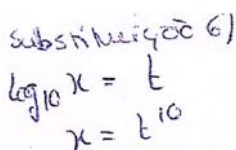 substituição 6)
log₁₀ x = t
x = t¹⁰